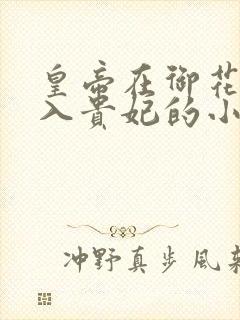 皇帝在御花
入贵妃的小
冲野真步风